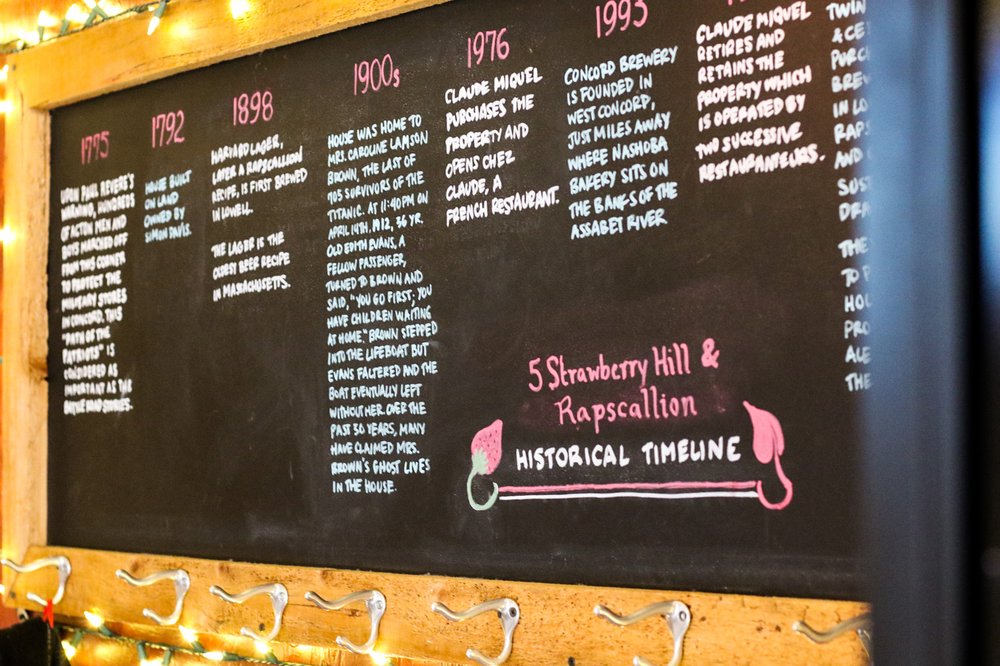 1775
UPON PAUL REVERE'S
WARNING, HUNDREDS
OF ACTON MEN AND
BOYS MARCHED OFF
FROM THIS CORNER
TO PROTECT THE
MILITARY STORES
IN CONCORD. THIS
"PATH OF THE
PATRIOTS" IS
CONSIDERED AS
IMPORTANT AS THE
BATTLE
1792
HOUSE BUILT
ON LAND
OWNED BY
SIMON DAVIS.
1898
HARVARD LAGER,
LATER A RAPSCALLION
RECIPE, IS FIRST BREWED
IN LOWELL.
THE LAGER IS THE
OLDEST BEER RECIPE
IN MASSACHUSETTS.
1900s
HOUSE WAS HOME TO
MRS. CAROLINE LAMSON
BROWN, THE LAST OF
705 SURVIVORS OF THE
TITANIC. AT 11:40PM ON
APRIL 14TH, 1912, 36 YR.
OLD EDITH EVANS, A
FELLOW PASSENGER,
TURNED TO BROWN AND
SAID, "YOU GO FIRST; YOU
HAVE CHILDREN WAITING
AT HOME." BROWN STEPPED
INTO THE LIFEBOAT BUT
EVANS FALTERED AND THE
BOAT EVENTUALLY LEFT
WITHOUT HER. OVER THE
PAST 30 YEARS, MANY
HAVE CLAIMED MRS.
BROWN'S GHOST LIVES
IN THE HOUSE.
1976
CLAUDE MIQUEL
PURCHASES THE
PROPERTY AND
OPENS CHEZ
CLAUDE, A
FRENCH RESTAURANT.
1993
CONCORD BREWERY
IS FOUNDED IN
WEST CONCORD,
JUST MILES AWAY
WHERE NASHOBA
BAKERY SITS ON
THE BANKS OF THE
ASSABET RIVER
CLAUDE MIQUEL
RETIRES AND
RETAINS THE
PROPERTY WHICH
IS OPERATED BY
TWO SUCCESSIVE
RESTAURANTEURS.
TWIN
& CE
PURC
BREW
IN LO
RAPS
AND
SUST
DRA
THE
TO
HOU
PRO
ALE
THE
5 Strawberry Hill &
Rapscallion
HISTORICAL TIMELINE